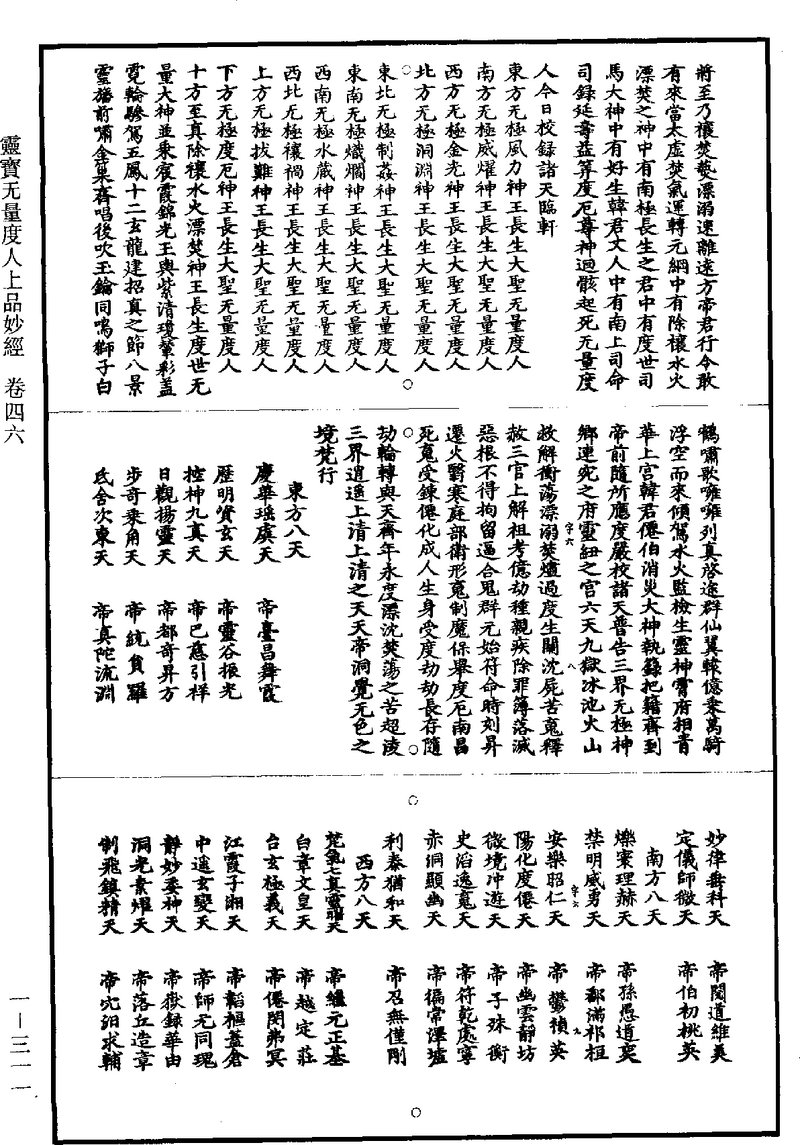 將至乃禳焚爇漂溺速離遠方帝君行令敢
有來當太虛焚氣運轉元綱中有除禳水火
漂焚之神中有南極長生之君中有度世司
馬大神中有好生韓君丈人中有南上司命
司錄延壽益算度厄尊神迴骸起死无量度
人今日校錄諸天臨軒
東方无極風力神王長生大聖无量度人
南方无極威耀神王長生大聖无量度人
西方无極金光神王長生大聖无量度人
北方无極洞淵神王長生大聖无量度人
東北无極制姦神王長生大聖无量度人
東南无極熾爛神王長生大聖无量度人
西南无極水藏神王長生大聖无量度人
西北无極禳禍神王長生大聖无量度人
上方无極拔難神王長生大聖无量度人
下方无極度厄神王長生大聖无量度人
十方至真除禳水火漂焚神王長生度世无
量大神並乘飛霞錦光玉輿紫清瓊輦彩蓋
霓輪驂駕五鳳十二玄龍建招真之節八景
靈旛前嘯金巢齊唱後吹玉鑰同鳴獅子白
鶴嘯歌嗈嗈列真啓途群仙翼轅億乘萬騎
浮空而來傾駕水火監檢生靈神霄府相青
華上宮韓君僊伯消災大神執籙把籍齊到
帝前隨所應度嚴校諸天普告三界无極神
鄉連宛之府靈紐之宮六天九獄冰池火山
救解衝蕩漂溺焚爐過度生關沈屍苦䰟釋
赦三官上解祖考億劫種親疾除罪簿落滅
惡根不得拘留逼合鬼群元始符命時刻昇
遷火翳寒庭部衛形䰟制魔保舉度厄南昌
死䰟受鍊僊化成人生身受度劫劫長存隨
劫輪轉與天齊年永度漂沈焚蕩之苦超淩
三界逍遥上清上清之天天帝洞覺无色之
境梵行
東方八天
慶華瑶虞天　帝臺昌舞霞
歷明賓玄天　帝靈谷振光
控神九真天　帝巴慈引祥
日觀揚靈天　帝都奇昇方
步奇乘角天　帝統負羅
氐舍次東天　帝真陀流淵
妙律無科天　帝閱道維美
定儀師微天　帝伯初桃英
南方八天
爍寰理赫天　帝孫愚道奕
禁明威勇天　帝郗滿祁桓
安樂昭仁天　帝鬱禎英
陽化度僊天　帝幽雲靜坊
微境冲遊天　帝子殊衡
史滔逸䰟天　帝符乾處寧
赤洞顯幽天　帝徧常澤墟
利泰猶和天　帝召無僅剛
西方八天
梵氣七真靈曜天　帝繼元正基
白章文皇天　帝越定莊
台玄極義天　帝僊閔弗冥
江霞子湘天　帝韜樞蓋倉
中遥玄變天　帝師无同瑰
靜妙委神天　帝嶽録華由
洞光素耀天　帝落丘造章
制飛鎮精天　帝宂汨求輔
靈寶无量度人上品妙經　卷四六
一—三一一